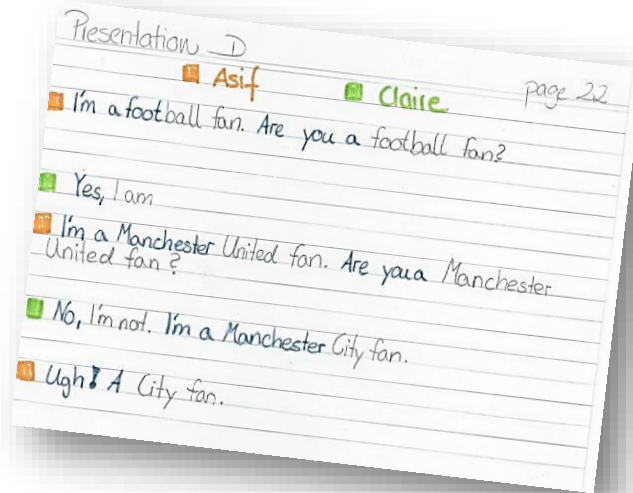 Presentation D
Asif Claire page 22
I'm a football fan. Are you a football fan?
Yes, I am
I'm a Manchester United fan. Are you a Manchester
United fan?
No, I'm not. I'm a Manchester City fan.
Ugh! A City fan.